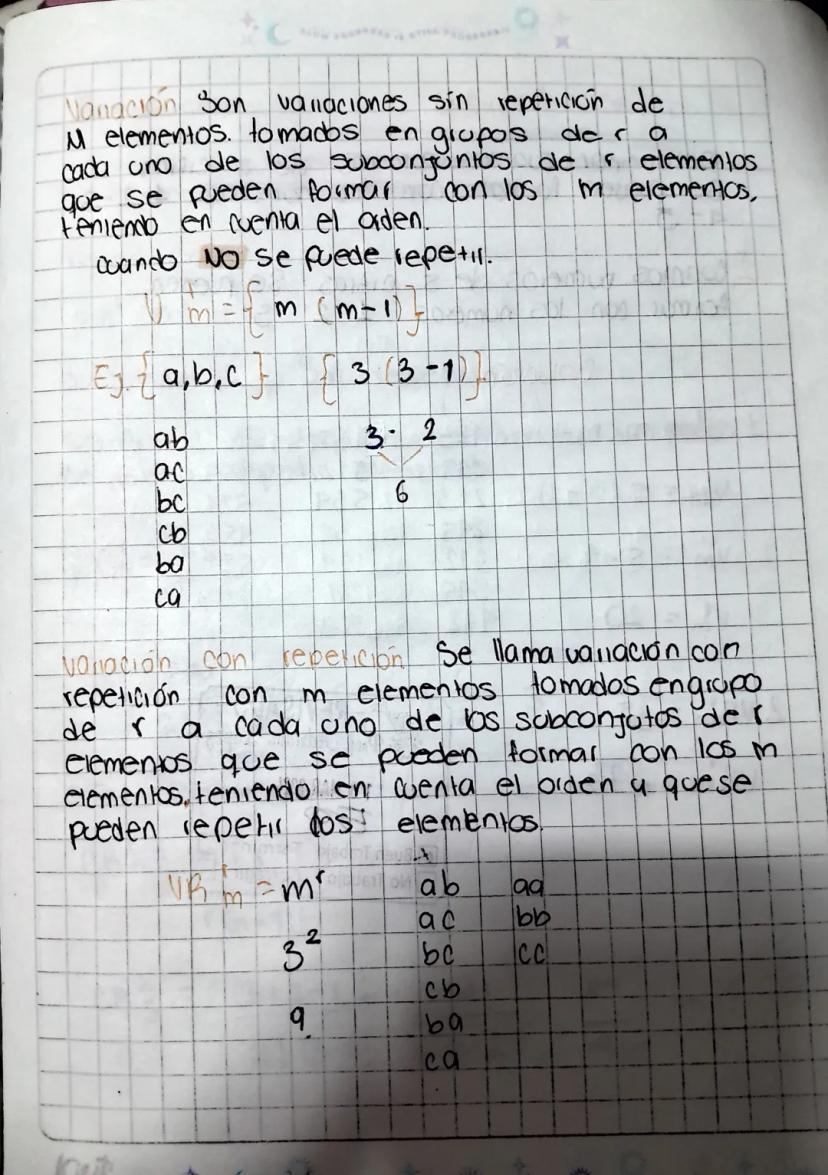 Variación Son variaciones sin repetición de
M elementos. tomados en grupos de r a
cada uno de los subconjuntos de r elementos
que se pueden formar con los m elementos,
teniendo en cuenta el orden.
cuando NO se puede repetir.
V r m = { m (m-1) }
Ej. { a, b, c } { 3 (3-1) }
ab 3 · 2
ac
bc 6
cb
ba
ca
variación con repetición Se llama variación con
repetición con m elementos tomados en grupo
de r a cada uno de los subconjutos de r
elementos que se pueden formar con los m
elementos, teniendo en cuenta el orden y que se
pueden repetir los elementos.
VR r m = mʳ ab aa
ac bb
3² bc cc
cb
9 ba
ca